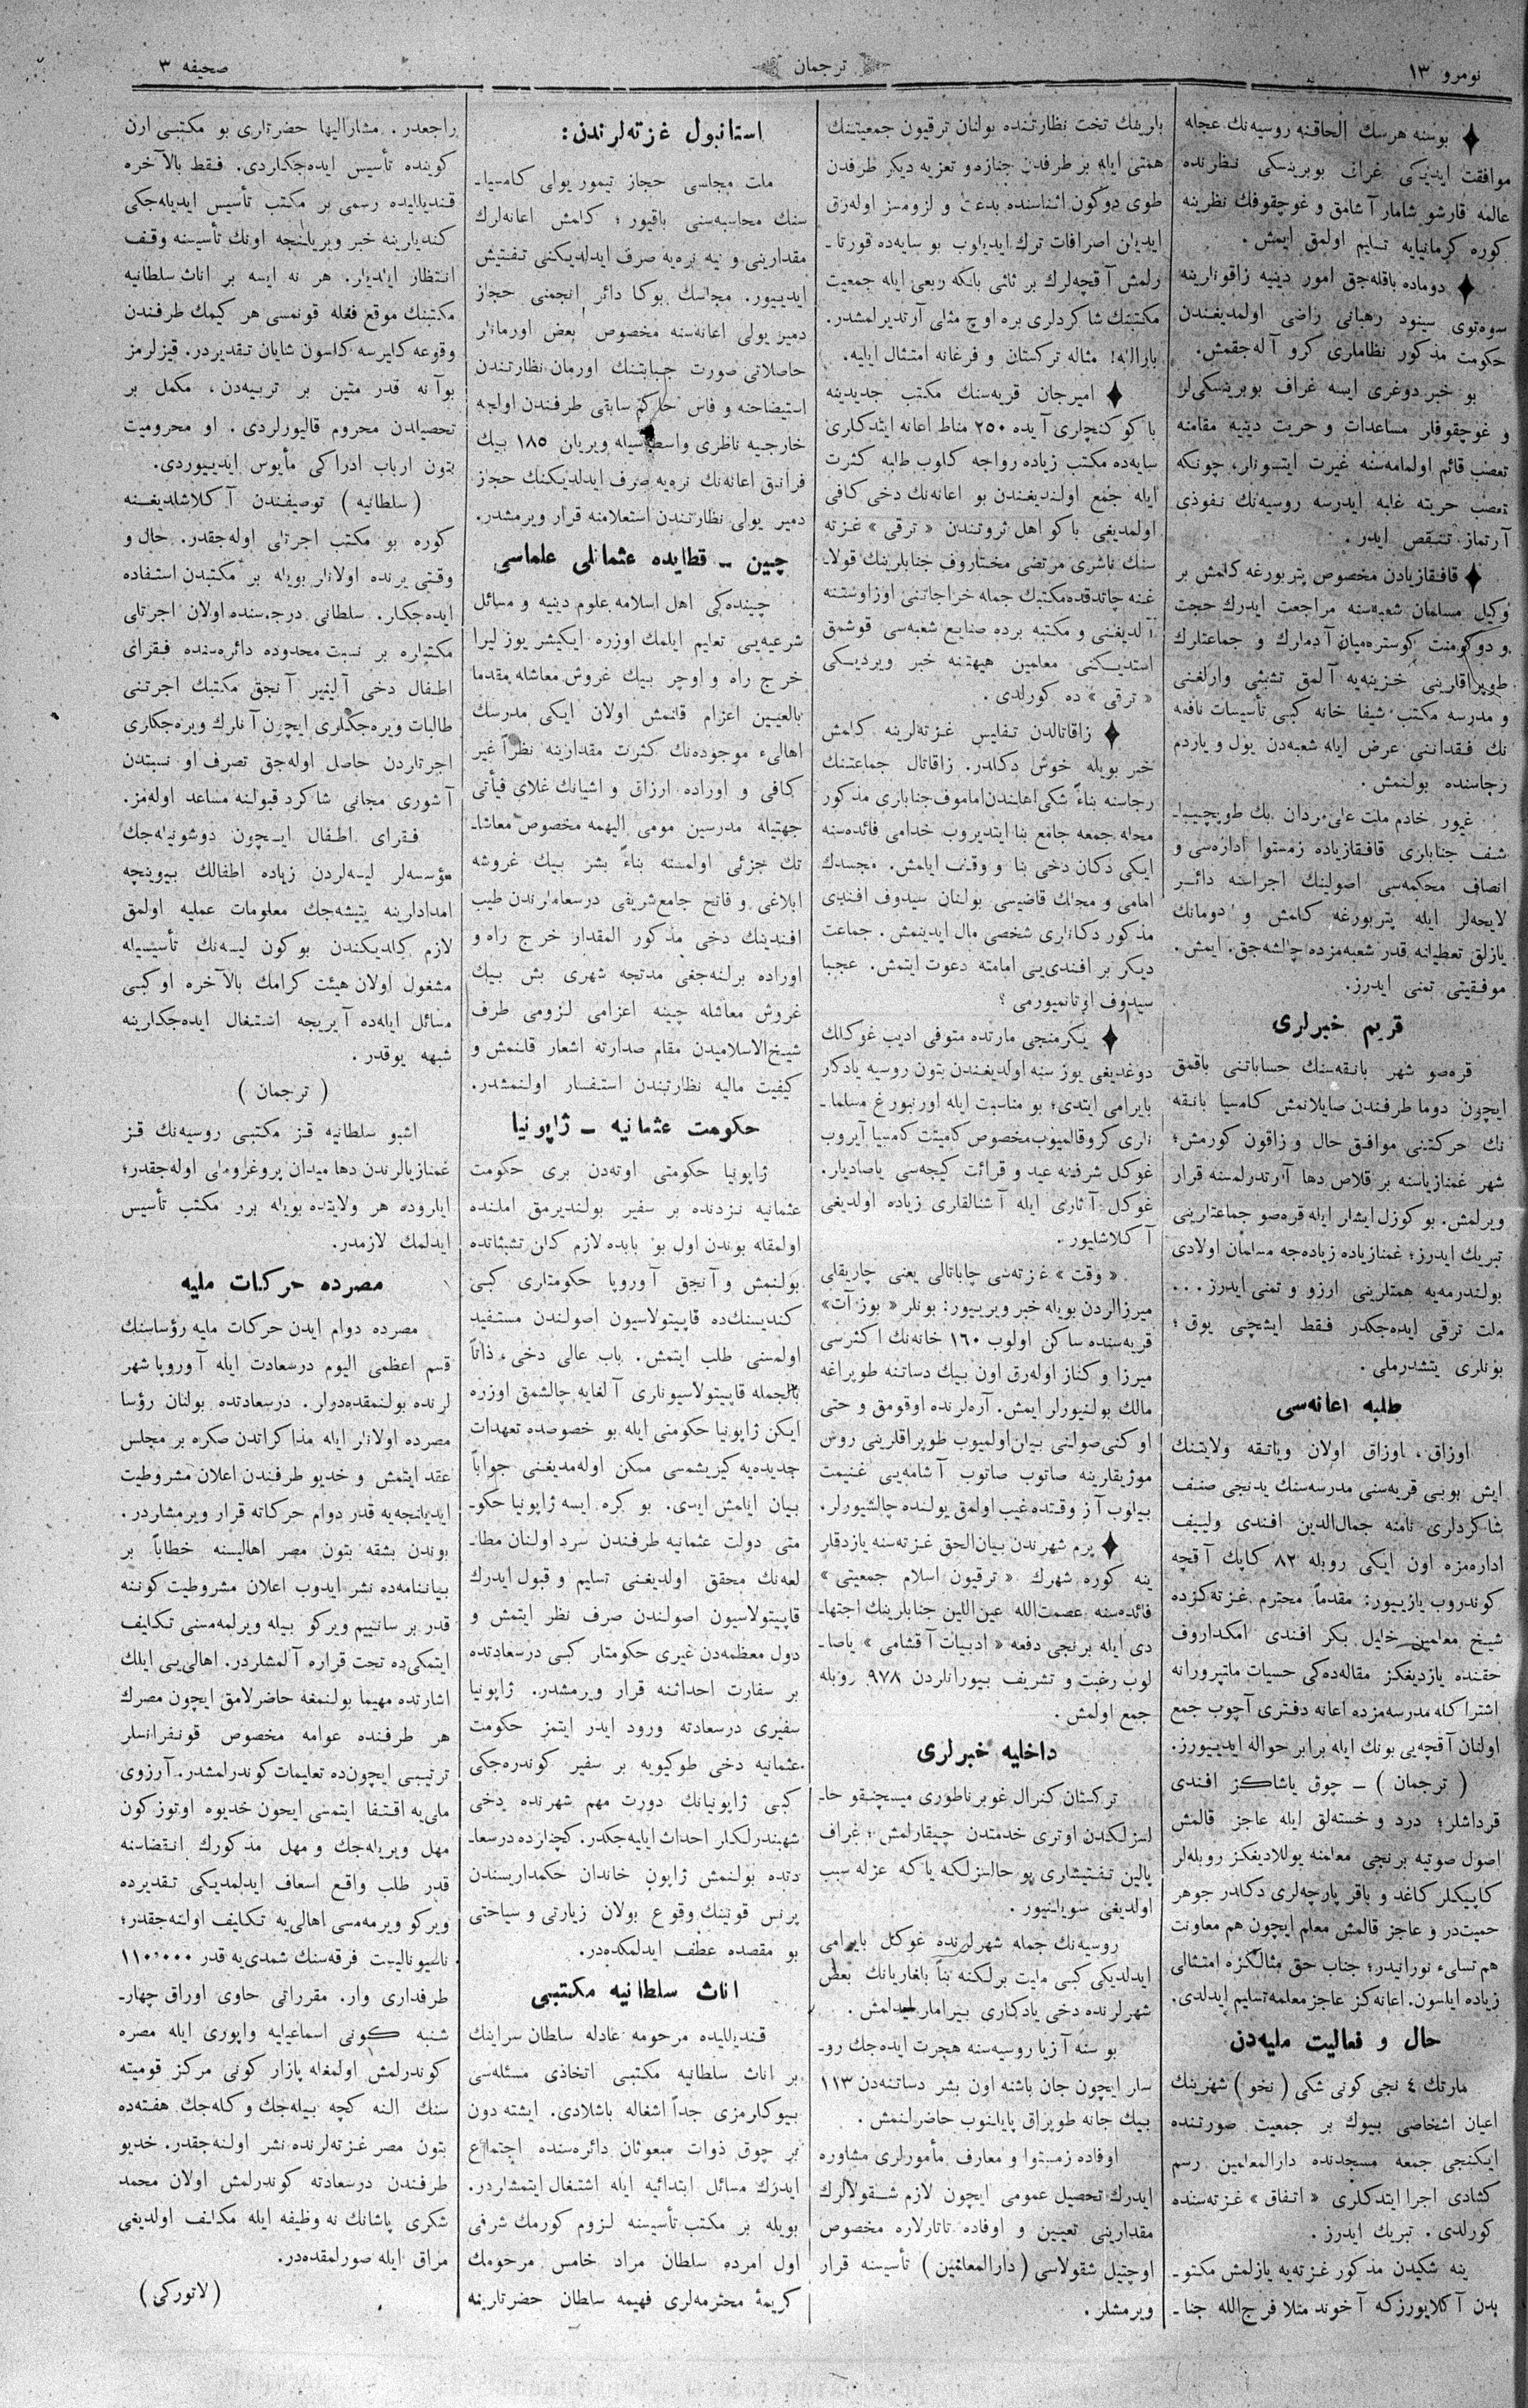 نومرو ١٣
ترجمان
صحیفه ٣
بوسنه هرسك الحاقنه روسیه‌نك عجله
موافقت ایدیكی غراف بوبرینسكی نظرنده
عالمه قارشو شامار آشامق و غوچقوفك نظرینه
كوره كرمانیایه تسلیم اولمق ایمش.
دوماده باقله‌جق امور دینیه زاقونلرینه
سوه‌توی سینود رهبانی راضی اولمدیغندن
حكومت مذكور نظاملری كرو آله‌جقمش.
بو خبر دوغری ایسه غراف بوبرینسكی‌لر
و غوچقوفلر مساعدات و حریت دینیه مقامنه
تعصب قائم اولمامه‌سنه غیرت ایتسونلر، چونكه
تعصب حریته غلبه ایدرسه روسیه‌نك نفوذی
آرتماز تنقص ایدر.
قافقازیادن مخصوص پتربورغه كلمش بر
وكیل مسلمان شعبه‌سنه مراجعت ایدرك حجت
و دوكومنت كوستره‌میان آدملرك و جماعتلرك
طوپراقلرینی خزینه‌یه آلمق تشبثی وارلغنی
و مدرسه مكتب شیفا خانه كبی تأسیسات نافعه
نك فقداننی عرض ایله شعبه‌دن یول و یاردم
رجاسنده بولنمش.
غیور خادم ملت علی‌مردان بك طوپچیبا‌ـ
شف جنابلری قافقازیاده زمستوا اداره‌سی و
انصاف محكمه‌سی اصولینك اجراسنه دائر
لایحه‌لر ایله پتربورغه كلمش و دومانك
یازلق تعطیلنه قدر شعبه‌مزده چالشه‌جق. ایمش.
موفقیتی تمنی ایدرز.
قریم خبرلری
قره‌صو شهر بانقه‌سنك حساباتنی باقمق
ایچون دوما طرفندن صایلانمش كامسیا بانقه
نك حركتنی موافق حال و زاقون كورمش؛
شهر غمنازیاسنه بر قلاص دها آرتدرلمسنه قرار
ویرلمش. بو كوزل ایشلر ایله قره‌صو جماعتلرینی
تبریك ایدرز؛ غمنازیاده زیاده‌جه مسلمان اولادی
بولندرمه‌یه همتلرینی ارزو و تمنی ایدرز...
ملت ترقی ایده‌جكدر فقط ایشچی یوق؛
بونلری یتشدرملی.
طلبه اعانه‌سی
اوزاق، اوزاق اولان ویاتقه ولایتنك
ایش بوبی قریه‌سنی مدرسه‌سنك یدنجی صنف
شاكردلری نامنه جمال‌الدین افندی ولییف
اداره‌مزه اون ایكی روبله ٨٢ كاپك آقچه
كوندروب یازیبور: مقدماً محترم غزته‌كزده
شیخ معلمین خلیل بكر افندی امكداروف
حقنده یازدیغكز مقاله‌ده‌كی حسیات ملتپرورانه
اشتراكله مدرسه‌مزده اعانه دفتری آچوب جمع
اولنان آقچه‌یی بونك ایله برابر حواله ایدیبورز.
(ترجمان) ــ چوق یاشاكز افندی
قرداشلر؛ درد و خسته‌لق ایله عاجز قالمش
اصول صوتیه برنجی معلمنه یوللادیغكز روبله‌لر
كاپیكلر كاغد و باقر پارچه‌لری دكلدر جوهر
حمیتدر و عاجز قالمش معلم ایچون هم معاونت
هم تسلیٔ نورانیدر؛ جناب حق مثالكزه امتثالی
زیاده ایلسون. اعانه‌كز عاجز معلمه تسلیم ایدلدی.
حال و فعالیت ملیه‌دن
مارتك ٤ نجی كونی شكی (نخو) شهرینك
اعیان اشخاصی بیوك بر جمعیت صورتنده
ایكنجی جمعه مسجدنده دارالمعلمین رسم
كشادی اجرا ایتدكلری «اتفاق» غزته‌سنده
كورلدی. تبریك ایدرز.
ینه شكیدن مذكور غزته‌یه یازلمش مكتو‌ـ
بدن آكلایورزكه آخوند مثلا فرج‌الله جنا‌ـ
بلرینك تخت نظارتنده بولنان ترقیون جمعیتنك
همتی ایله بر طرفدن جنازه و تعزیه دیكر طرفدن
طوی دوكون اثناسنده بدعت و لزومسز اوله‌رق
ایدیلن اصرافات ترك ایدیلوب بو سایه‌ده قورتا‌ـ
رلمش آقچه‌لرك بر ثلثی بانكه ربعی ایله جمعیت
مكتبنك شاكردلری بره اوچ مثلی آرتدیرلمشدر.
بارالله! مثاله تركستان و فرغانه امتثال ایلیه.
امیرجان قریه‌سنك مكتب جدیدینه
باكو كنجلری آیده ٢٥٠ مناط اعانه ایتدكلری
سایه‌ده مكتب زیاده رواجه كلوب طلبه كثرت
ایله جمع اولندیغندن بو اعانه‌نك دخی كافی
اولمدیغی باكو اهل ثروتندن «ترقی» غزته
سنك ناشری مرتضی مختاروف جنابلرینك قولا‌ـ
غنه چاتدقده مكتبك جمله خراجاتنی اوزاوشتنه
آلدیغنی و مكتبه برده صنایع شعبه‌سی قوشمق
استدیكنی معلمین هیهتنه خبر ویردیكی
«ترقی» ده كورلدی.
زاقاتالدن تفلیس غزته‌لرینه كلمش
خبر بویله خوش دكلدر. زاقاتال جماعتنك
رجاسنه بناً شكی اهلندن اماموف جنابلری مذكور
محله جمعه جامع بنا ایتدیروب خدامی فائده‌سنه
ایكی دكان دخی بنا و وقف ایلمش. مجسدك
امامی و محلك قاضیسی بولنان سیدوف افندی
مذكور دكانلری شخصی مال ایدینمش. جماعت
دیكر بر افندی‌یی امامته دعوت ایتمش. عجبا
سیدوف اوتانمیورمی؟
یكرمنجی مارتده متوفی ادیب غوكلك
دوغدیغی یوز سنه اولدیغندن بتون روسیه یادكار
بایرامی ایتدی؛ بو مناسبت ایله اورنبورغ مسلما‌ـ
نلری كروقالمیوب مخصوص كامیتت كامسیا آیروب
غوكل شرفنه عید و قرائت كیجه‌سی یاصادیلر.
غوكل آثاری ایله آشنالقلری زیاده اولدیغی
آكلاشلیور.
«وقت» غزته‌سی چاباتالی یعنی چاریقلی
میرزالردن بویله خبر ویریبور: بونلر «بوز آت»
قریه‌سنده ساكن اولوب ١٦٠ خانه‌نك اكثرسی
میرزا و كناز اوله‌رق اون بیك دساتنه طوپراغه
مالك بولنیورلر ایمش. آره‌لرنده اوقومق و حتی
اوكنی‌صولنی بیلن اولمیوب طوپراقلرینی روس
موژیقلرینه صاتوب صاتوب آشامه‌یی غنیمت
بیلوب آز وقتده غیب اولمق یولنده چالشیورلر.
پرم شهرندن بیان‌الحق غزته‌سنه یازدقلر
ینه كوره شهرك «ترقیون اسلام جمعیتی»
فائده‌سنه عصمت‌الله عین‌اللین جنابلرینك اجتها‌ـ
دی ایله برنجی دفعه «ادبیات آقشامی» یاصا‌ـ
لوب رغبت و تشریف بیورانلردن ٩٧٨ روبله
جمع اولمش.
داخلیه خبرلری
تركستان كنرال غوبرناطوری میسچنقو حا‌ـ
لسزلكدن اوتری خدمتدن چیقارلمش؛ غراف
پالین تفتیشلری بو حالسزلكه یا كه عزله سبب
اولدیغی سویلنیور.
روسیه‌نك جمله شهرلرنده غوكل بایرامی
ایدلدیكی كبی ملیت برلكنه بناً بلغاریانك بعض
شهرلرنده دخی یادكاری بیراملر ایدلمش.
بو سنه آزیا روسیه‌سنه هجرت ایده‌جك رو‌ـ
سلر ایچون جان باشنه اون بشر دساتنه‌دن ١١٣
بیك جانه طوپراق پایلنوب حاضرلنمش.
اوفاده زمستوا و معارف مأمورلری مشاوره
ایدرك تحصیل عمومی ایچون لازم شقولالرك
مقدارینی تعیین و اوفاده تاتارلاره مخصوص
اوچتیل شقولاسی (دارالمعلمین) تأسیسنه قرار
ویرمشلر.
استانبول غزته‌لرندن:
ملت مجلسی حجاز تیمور یولی كامسیا‌ـ
سنك محاسبه‌سنی باقیور؛ كلمش اعانه‌لرك
مقدارینی و نیه نره‌یه صرف ایدلدیكنی تفتیش
ایدیبور. مجلسك بوكا دائر انجمنی حجاز
دمیر یولی اعانه‌سنه مخصوص بعض اورمانلر
حاصلاتی صورت جبایتنك اورمان نظارتندن
استیضاحنه و فاس حاكم سابقی طرفندن اولجه
خارجیه ناظری واسطه‌سیله ویریلن ١٨٥ بیك
فرانق اعانه‌نك نره‌یه صرف ایدلدیكنك حجاز
دمیر یولی نظارتندن استعلامنه قرار ویرمشدر.
چین ــ قطایده عثمانلی علماسی
چینده‌كی اهل اسلامه علوم دینیه و مسائل
شرعیه‌یی تعلیم ایلمك اوزره ایكیشر یوز لیرا
خرج راه و اوچر بیك غروش معاشله مقدما
بالعیین اعزام قلنمش اولان ایكی مدرسك
اهالیٔ موجوده‌نك كثرت مقدارینه نظراً غیر
كافی و اوراده ارزاق و اشیانك غلای فیأتی
جهتیله مدرسین مومی الیهمه مخصوص معاشا‌ـ
تك جزئی اولمسنه بناً بشر بیك غروشه
ابلاغی و فاتح جامع‌شریفی درسعاملرندن طیب
افندینك دخی مذكور المقدار خرج راه و
اوراده برلنه‌جغی مدتجه شهری بش بیك
غروش معاشله چینه اعزامی لزومی طرف
شیخ‌الاسلامیدن مقام صدارته اشعار قلنمش و
كیفیت مالیه نظارتندن استفسار اولنمشدر.
حكومت عثمانیه ــ ژاپونیا
ژاپونیا حكومتی اوته‌دن بری حكومت
عثمانیه نزدنده بر سفیر بولندیرمق املنده
اولمقله بوندن اول بو بابده لازم كلن تشبثاتده
بولنمش و آنجق آوروپا حكومتلری كبی
كندیسنك‌ده قاپیتولاسیون اصولندن مستفید
اولمسنی طلب ایتمش. باب عالی دخی ذاتاً
بالجمله قاپیتولاسیونلری آلغایه چالشمق اوزره
ایكن ژاپونیا حكومتی ایله بو خصوصده تعهدات
جدیده‌یه كیریشمسی ممكن اوله‌مدیغنی جواباً
بیان ایلمش ایدی. بو كره ایسه ژاپونیا حكو‌ـ
متی دولت عثمانیه طرفندن سرد اولنان مطا‌ـ
لعه‌نك محقق اولدیغنی تسلیم و قبول ایدرك
قاپیتولاسیون اصولندن صرف نظر ایتمش و
دول معظمه‌دن غیری حكومتلر كبی درسعادتده
بر سفارت احداثنه قرار ویرمشدر. ژاپونیا
سفیری درسعادته ورود ایدر ایتمز حكومت
عثمانیه دخی طوكیویه بر سفیر كوندره‌جكی
كبی ژاپونیانك دورت مهم شهرنده دخی
شهبندرلكلر احداث ایلیه‌جكدر. كچنلرده درسعا‌ـ
دتده بولنمش ژاپون خاندان حكمداریسندن
پرنس قونینك وقوع بولان زیارتی و سیاحتی
بو مقصده عطف ایدلمكده‌در.
اناث سلطانیه مكتبی
قندیللیده مرحومه عادله سلطان سراینك
بر اناث سلطانیه مكتبی اتخاذی مسئله‌سی
بیوكلرمزی جداً اشغاله باشلادی. ایشته دون
بر چوق ذوات مبعوثان دائره‌سنده اجتماع
ایدرك مسائل ابتدائیه ایله اشتغال ایتمشلردر.
بویله بر مكتب تأسیسنه لزوم كورمك شرفی
اول امرده سلطان مراد خامس مرحومك
كریمهٔ محترمه‌لری فهیمه سلطان حضرتلرینه
راجعدر. مشارالیها حضرتلری بو مكتبی ارن
كوینده تأسیس ایده‌جكلردی. فقط بالآخره
قندیللیده رسمی بر مكتب تأسیس ایدیله‌جكی
كندیلرینه خبر ویریلنجه اونك تأسیسنه وقف
انتظار ایلدیلر. هر نه ایسه بر اناث سلطانیه
مكتبنك موقع فعله قونمسی هر كیمك طرفندن
وقوعه كلیرسه كلسون شایان تقدیردر. قیزلرمز
بوآنه قدر متین بر تربیه‌دن، مكمل بر
تحصیلدن محروم قالیورلردی. او محرومیت
بتون ارباب ادراكی مأیوس ایدیبوردی.
(سلطانیه) توصیفندن آكلاشلدیغنه
كوره بو مكتب اجرتلی اوله‌جقدر. حال و
وقتی یرنده اولانلر بویله بر مكتبدن استفاده
ایده‌جكلر. سلطانی درجه‌سنده اولان اجرتلی
مكتبلره بر نسبت محدوده دائره‌سنده فقرای
اطفال دخی آلینیر آنجق مكتبك اجرتنی
طالبات ویره‌جكلری ایچون آنلرك ویره‌جكلری
اجرتلردن حاصل اوله‌جق تصرف او نسبتدن
آشوری مجانی شاكرد قبولنه مساعد اوله‌مز.
فقرای اطفال ایچون دوشونیله‌جك
مؤسسه‌لر لیسه‌لردن زیاده اطفالك بیوینجه
امدادلرینه یتیشه‌جك معلومات عملیه اولمق
لازم كلدیكندن بوكون لیسه‌نك تأسیسیله
مشغول اولان هیئت كرامك بالآخره اوكبی
مسائل ایله‌ده آیریجه اشتغال ایده‌جكلرینه
شبهه یوقدر.
(ترجمان)
اشبو سلطانیه قز مكتبی روسیه‌نك قز
غمنازیالرندن دها میدان پروغروملی اوله‌جقدر؛
ایلروده هر ولایتده بویله برر مكتب تأسیس
ایدلمك لازمدر.
مصرده حركات ملیه
مصرده دوام ایدن حركات ملیه رؤساسنك
قسم اعظمی الیوم درسعادت ایله آوروپا شهر
لرنده بولنمقده‌درلر. درسعادتده بولنان رؤسا
مصرده اولانلر ایله مذاكراتدن صكره بر مجلس
عقد ایتمش و خدیو طرفندن اعلان مشروطیت
ایدیلنجه‌یه قدر دوام حركاته قرار ویرمشلردر.
بوندن بشقه بتون مصر اهالیسنه خطاباً بر
بیاننامه‌ده نشر ایدوب اعلان مشروطیت كوننه
قدر بر سانتیم ویركو بیله ویرلمه‌مسنی تكلیف
ایتمكی‌ده تحت قراره آلمشلردر. اهالی‌یی ایلك
اشارتده مهیما بولنمغه حاضرلامق ایچون مصرك
هر طرفنده عوامه مخصوص قونفرانسلر
ترتیبی ایچون‌ده تعلیمات كوندرلمشدر. آرزوی
ملی‌یه اقتفا ایتمسی ایچون خدیوه اوتوز كون
مهل ویریله‌جك و مهل مذكورك انقضاسنه
قدر طلب واقع اسعاف ایدلمدیكی تقدیرده
ویركو ویرمه‌مسی اهالی‌یه تكلیف اولنه‌جقدر؛
ناسیونالیست فرقه‌سنك شمدی‌یه قدر ١١٠٠٠٠
طرفداری وار. مقرراتی حاوی اوراق چهار‌ـ
شنبه كونی اسماعیلیه واپوری ایله مصره
كوندرلمش اولمغله پازار كونی مركز قومیته
سنك النه كچه بیله‌جك و كله‌جك هفته‌ده
بتون مصر غزته‌لرنده نشر اولنه‌جقدر. خدیو
طرفندن درسعادته كوندرلمش اولان محمد
شكری پاشانك نه وظیفه ایله مكلف اولدیغی
مراق ایله صورلمقده‌در.
(لاتوركی)